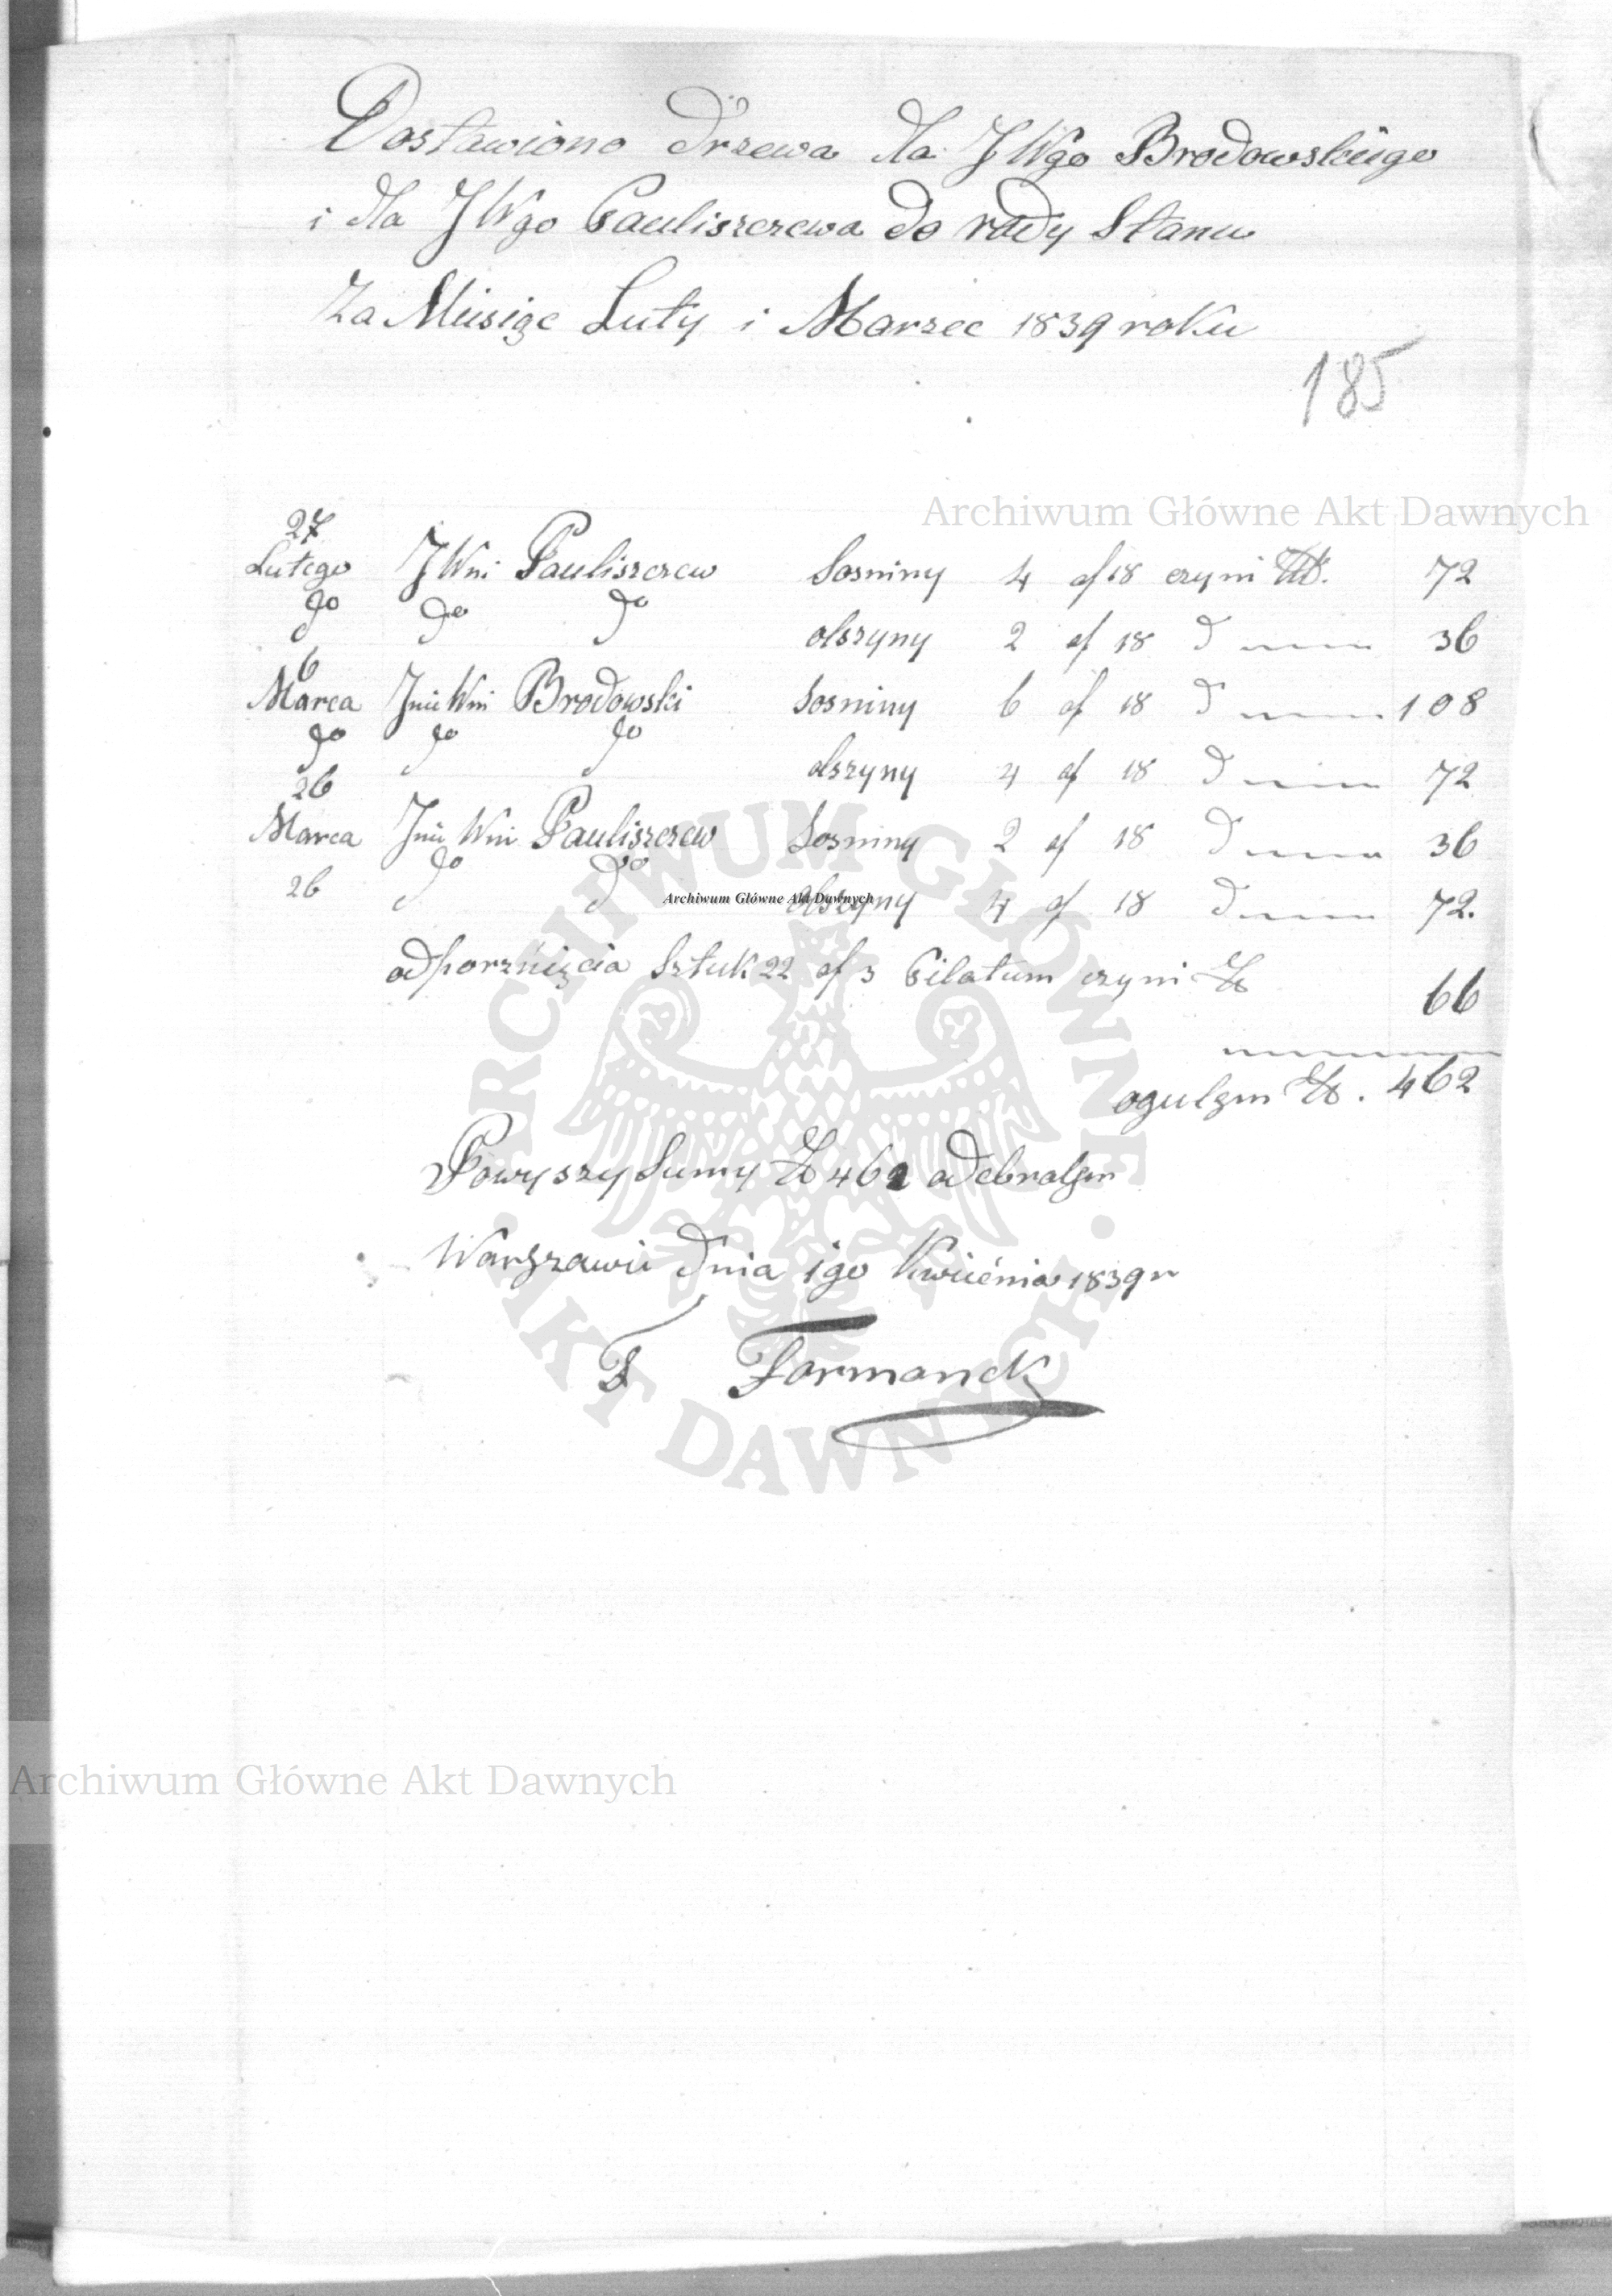 Dostawiono drzewa dla JWgo Brodowskiego
i dla JWgo Pauliszczewa do rady Stanu
Za Miesiąc Luty i Marzec 1839 roku
185
Archiwum Główne Akt Dawnych
27
Lutego JWni Pauliszczew Sosniny 4 af 18 czyni 72
do do do olszyny 2 af 18 d 36
6
Marca Jnie Wni Brodowski Sosniny 6 af 18 d 108
do do do olszyny 4 af 18 d 72
26
Marca Jnie Wni Pauliszczew Sosniny 2 af 18 d 36
26 do do olszyny 4 af 18 d 72.
Archiwum Główne Akt Dawnych
odporznięcia Sztuk 22 af 3 czyni Zł 66
ogułem Zł. 462
Powyszy Sumy Zł 462 odebrałem
Warszawie dnia 1go Kwiecnia 1839 r
F Formanek
ARCHIWUM GŁÓWNE AKT DAWNYCH
Archiwum Główne Akt Dawnych